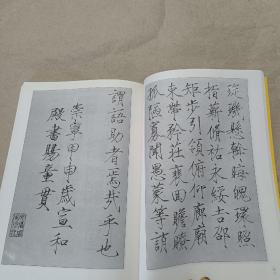 琁璣縣斡晦魄環照
指薪脩祜永綏吉邵
矩步引領俯仰廊廟
束帶矜莊裵回瞻眺
孤陋寡聞愚蒙等誚
謂語助者焉哉乎也
崇寧甲申歲宣和
殿書賜童貫